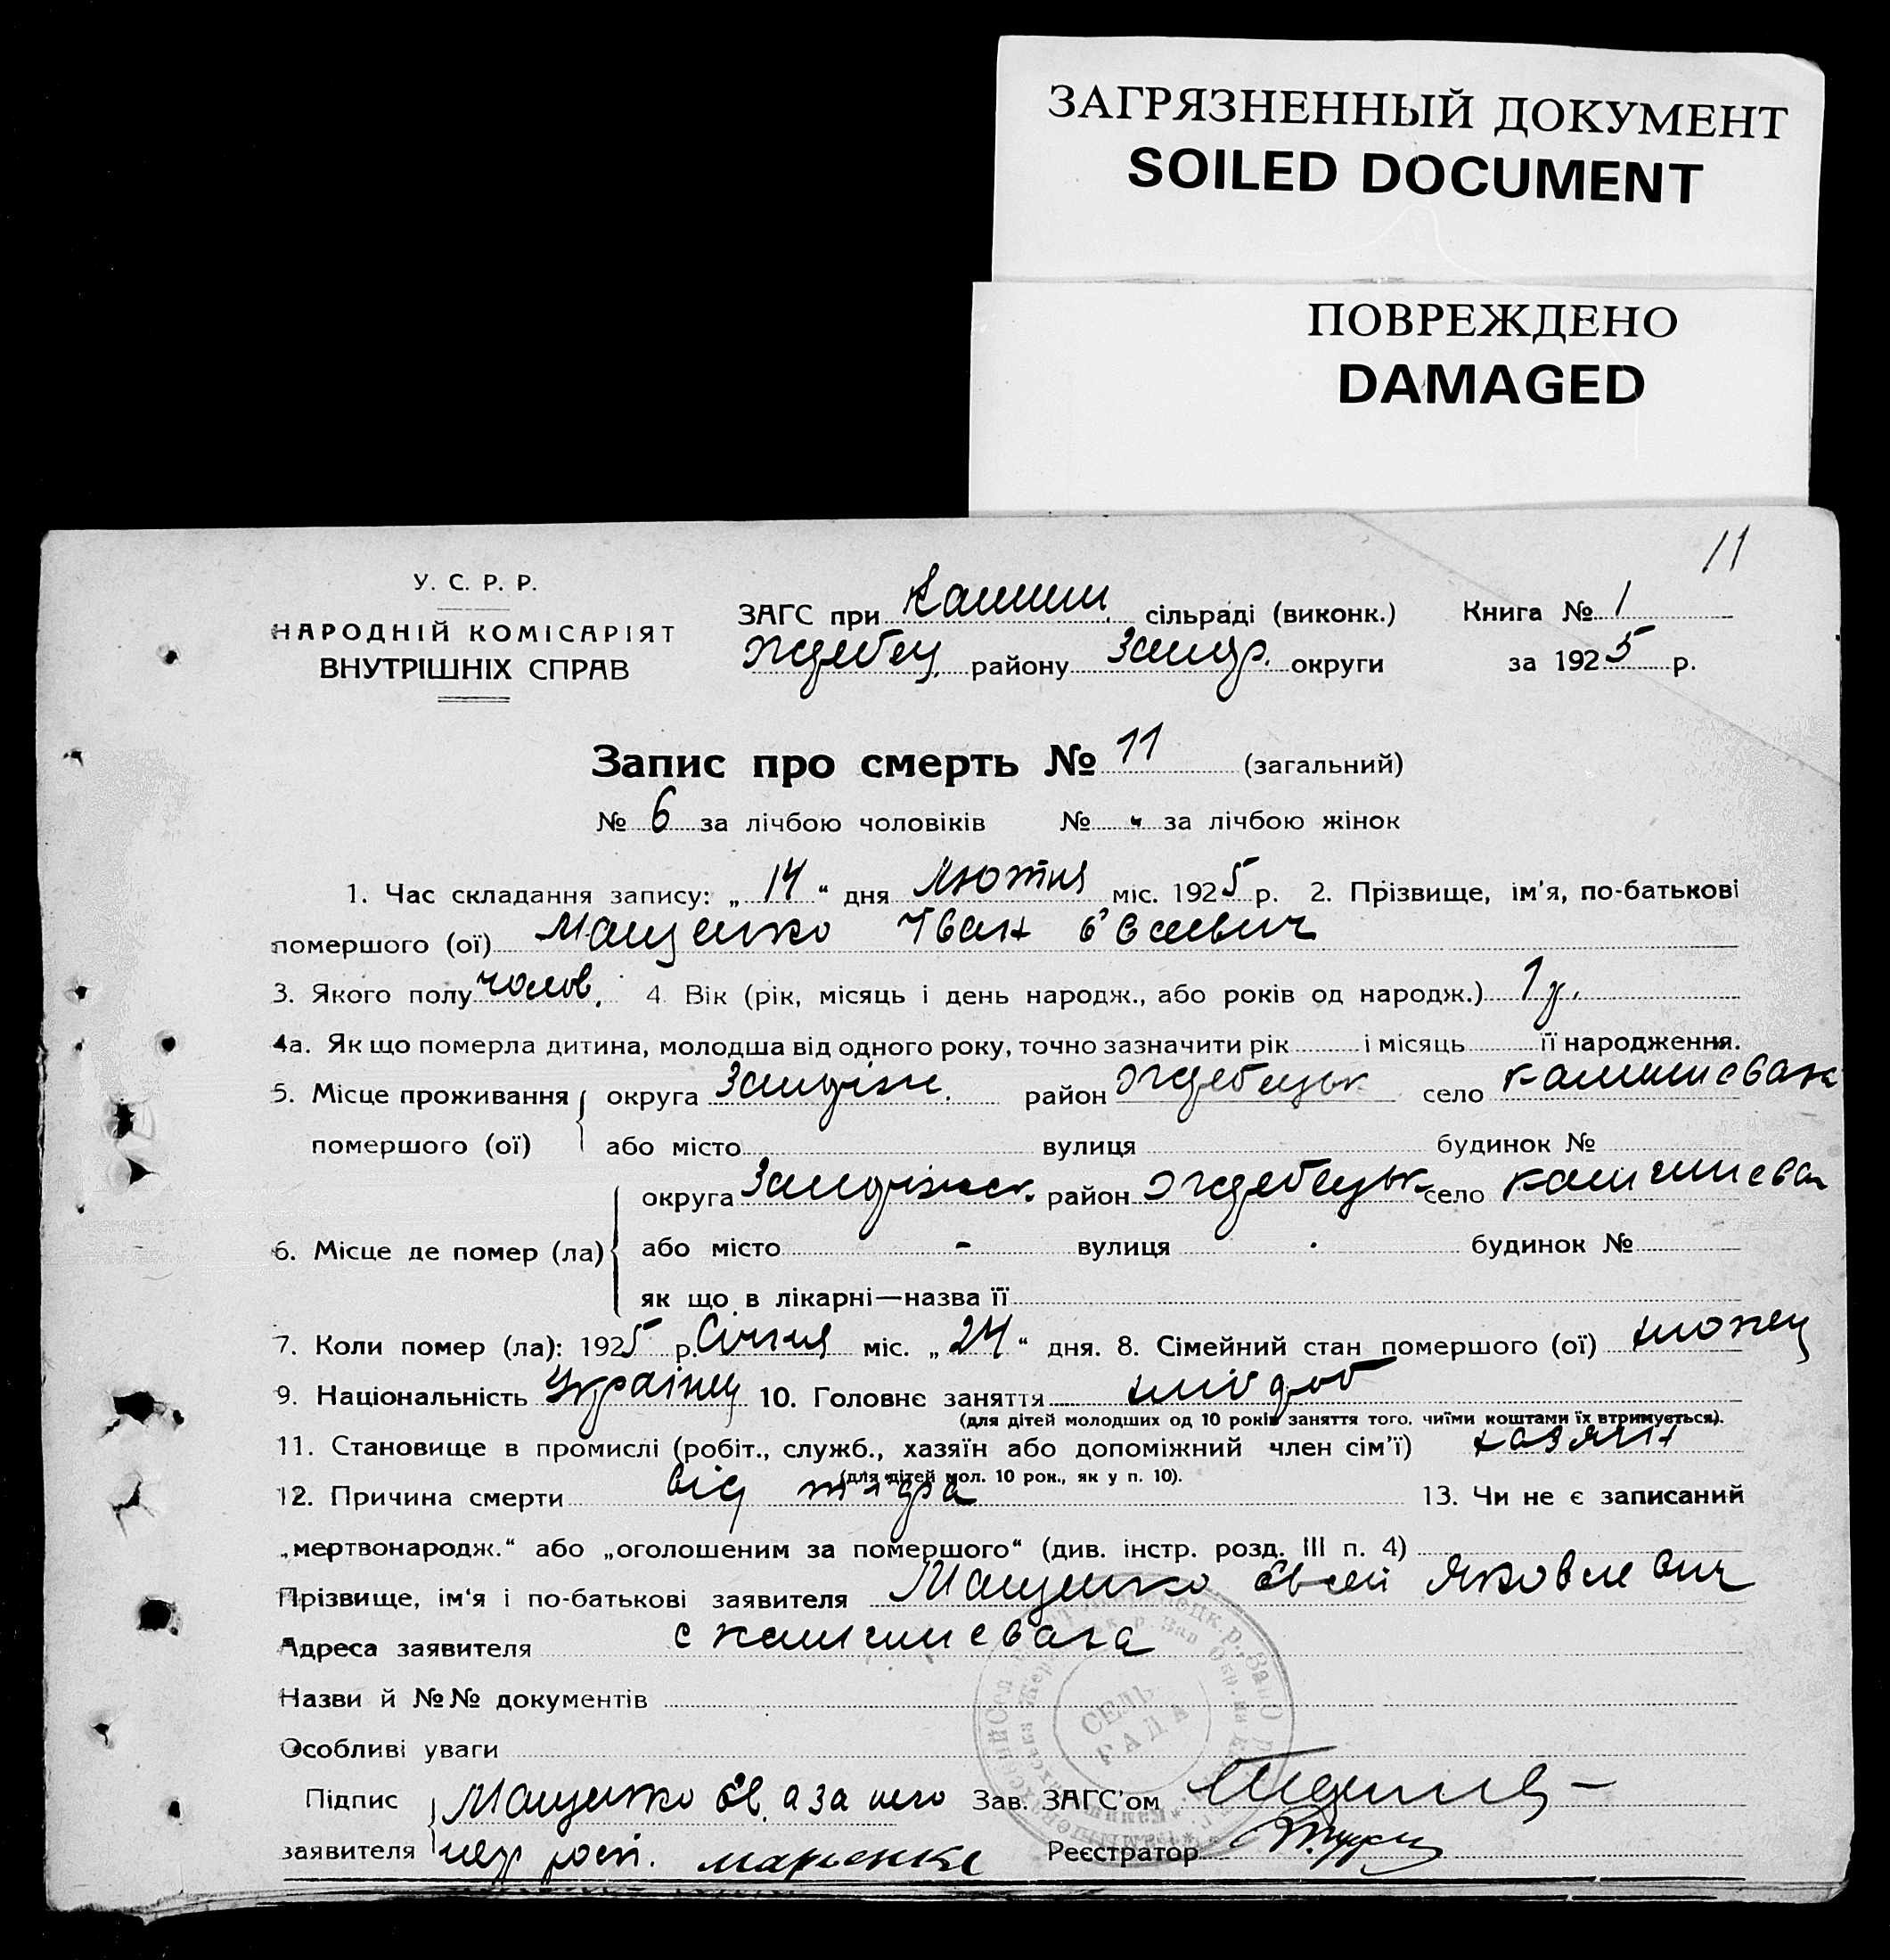 ЗАГРЯЗНЕННЫЙ ДОКУМЕНТ
SOILED DOCUMENT
ПОВРЕЖДЕНО
DAMAGED
11
У. С. Р. Р.
НАРОДНІЙ КОМІСАРІЯТ
ВНУТРІШНІХ СПРАВ
ЗАГС при Камиш. сільраді (виконк.) Книга № 1
Жеребец. району Запор. округи за 1925 р.
Запис про смерть № 11 (загальний)
№ 6 за лічбою чоловіків № " за лічбою жінок
1. Час складання запису: „14“ дня Лютня міс. 1925 р. 2. Прізвище, ім'я, по-батькові
помершого (ої) Мащенко Іван Євсеевич
3. Якого полу чолов. 4. Вік (рік, місяць і день народж., або років од народж.) 1 р.
4а. Як що померла дитина, молодша від одного року, точно зазначити рік і місяць її народження.
5. Місце проживання округа район село
помершого (ої) або місто вулиця будинок №
округа район село
6. Місце де помер (ла) або місто - вулиця будинок №
як що в лікарні—назва її
7. Коли помер (ла): 1925 р. Січня міс. „24“ дня. 8. Сімейний стан помершого (ої)
9. Національність Українец 10. Головнє заняття хлібороб
(для дітей молодших од 10 років заняття того, чиїми коштами їх втримується).
11. Становище в промислі (робіт., служб., хазяїн або допоміжний член сім'ї) хазяїн
(для дітей мол. 10 рок., як у п. 10).
12. Причина смерти від 13. Чи не є записаний
„мертвонародж.“ або „оголошеним за помершого“ (див. інстр. розд. III п. 4)
Прізвище, ім'я і по-батькові заявителя Мащенко Євсей Яковлевич
Адреса заявителя с Камишеваха
Назви й №№ документів
Особливі уваги
СЕЛЬ
РАДА
Підпис Мащенко Єв. а за него Зав. ЗАГС'ом
заявителя Реєстратор